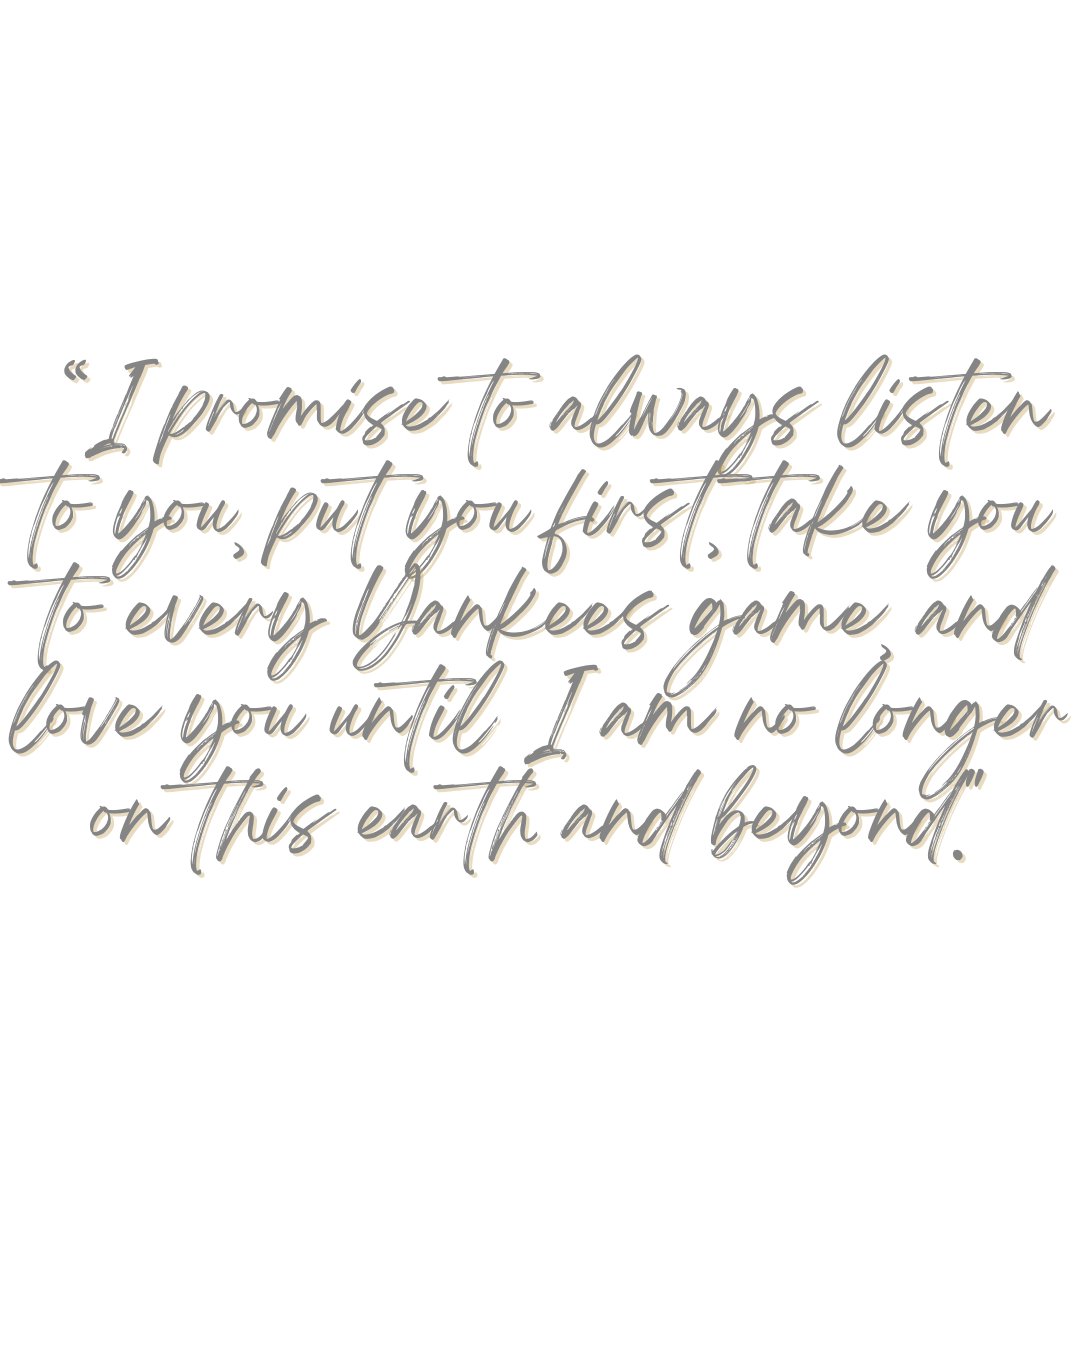 “ I promise to always listen
to you, put you first, take you
to every Yankees game, and
love you until I am no longer
on this earth and beyond”.